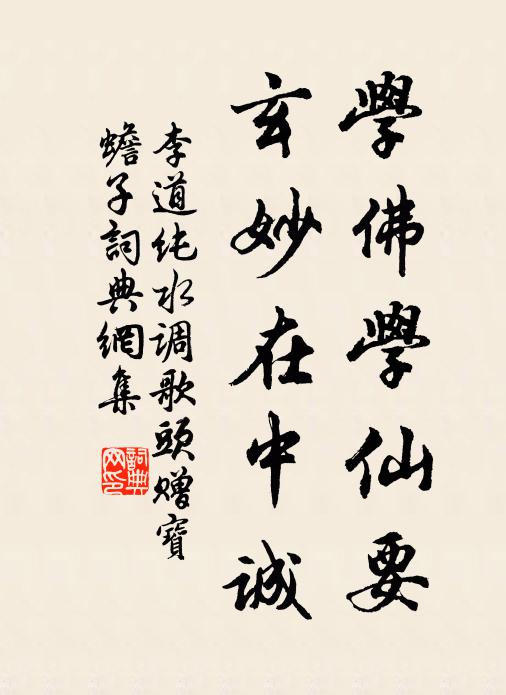 學佛學仙要
玄妙在中誠
李道纯水调歌頭赠寶
蟾子詞典網集
詞典网印